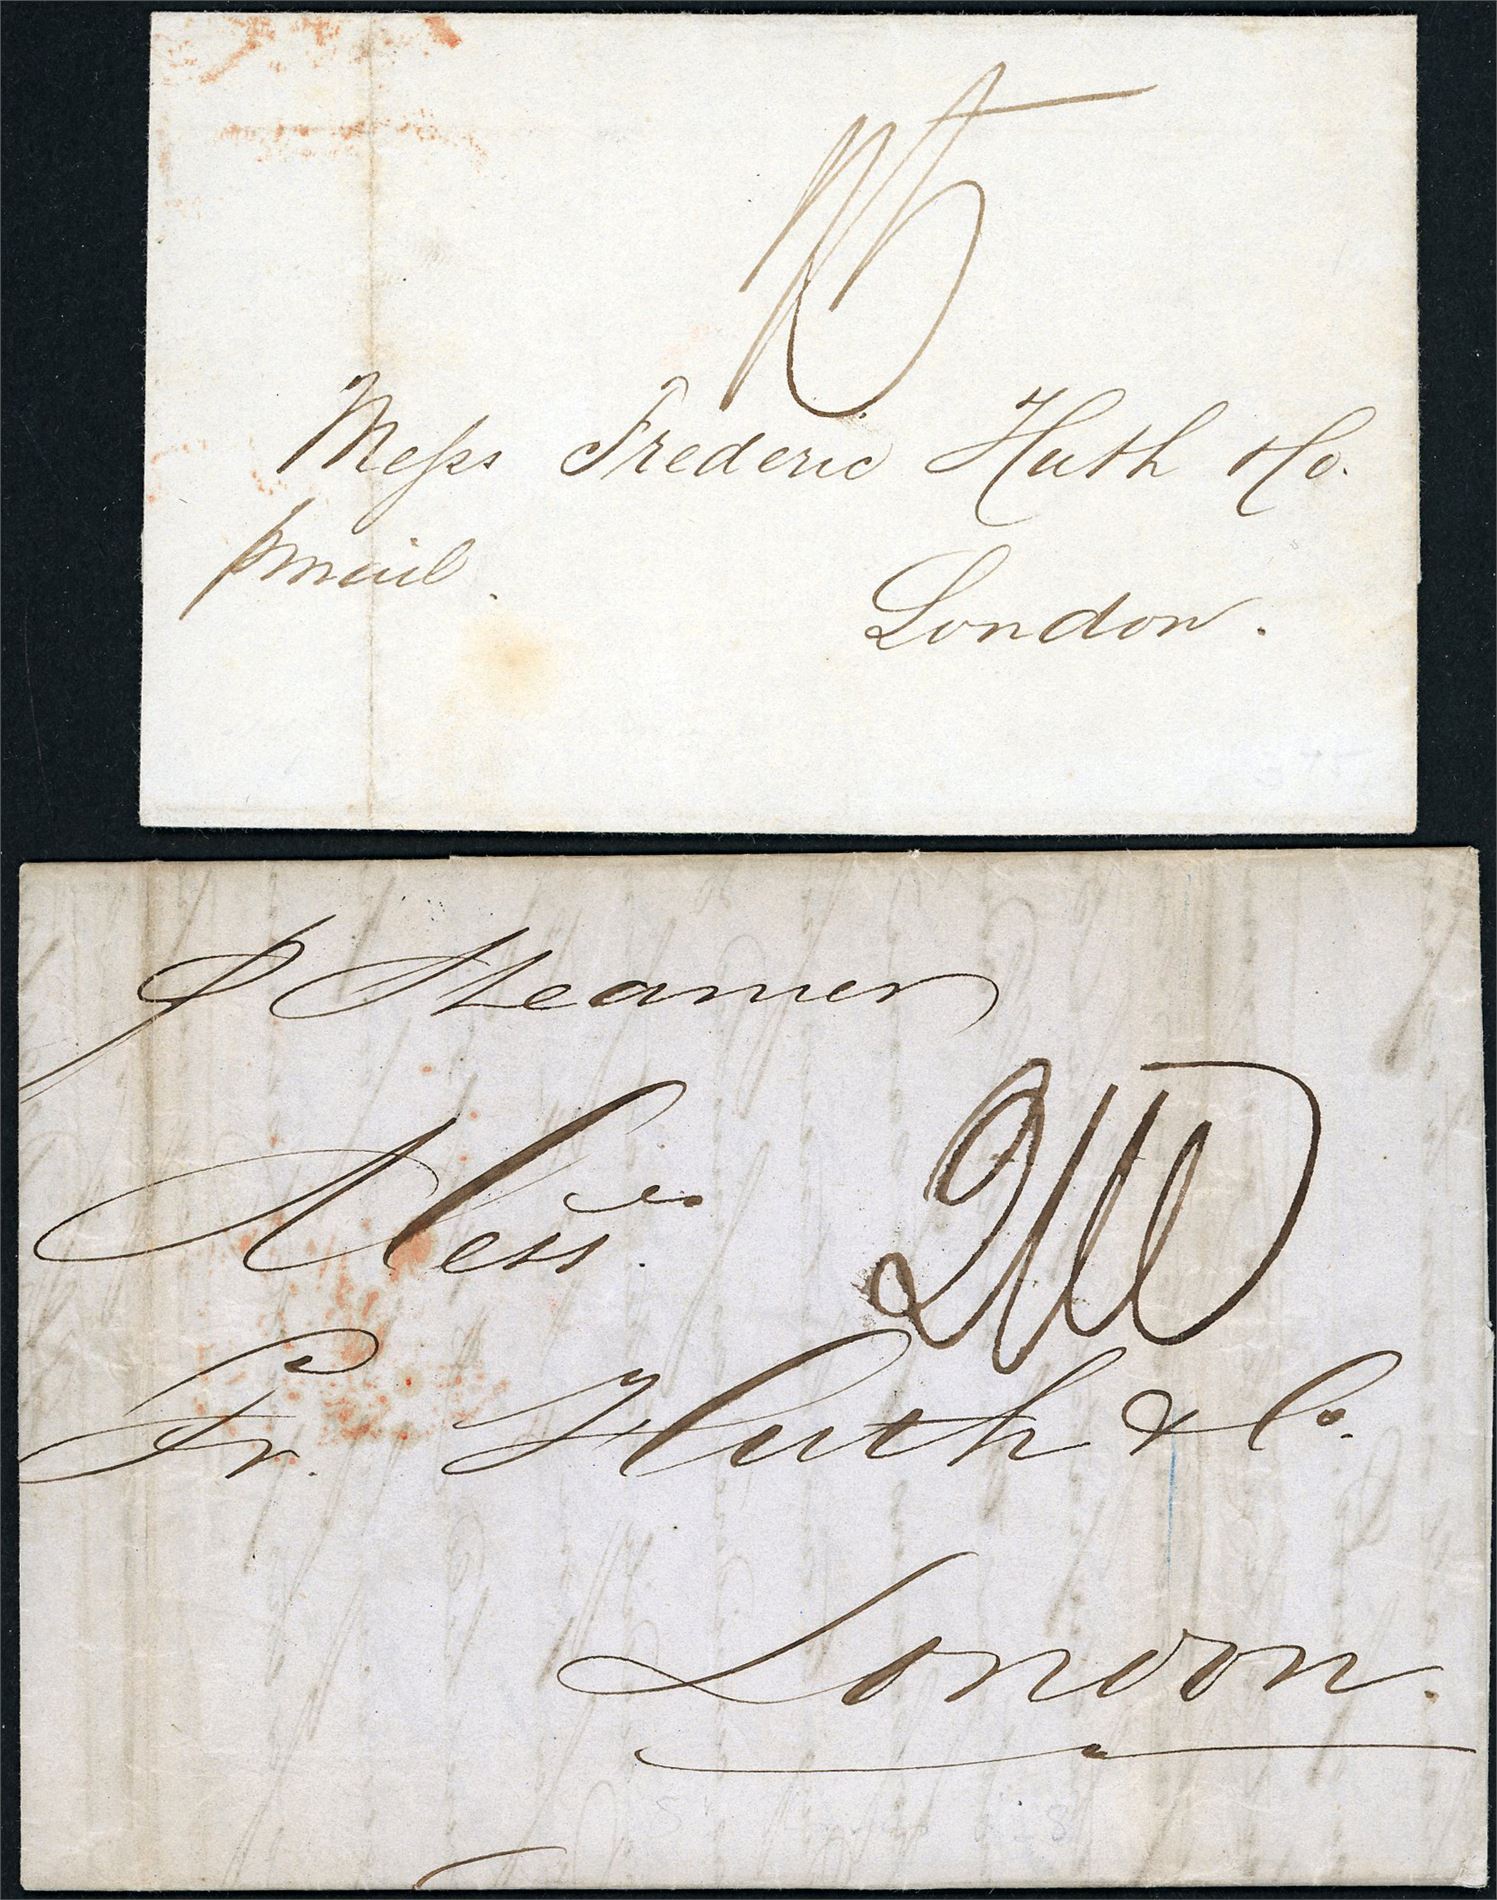 Messs Frederic Huth & Co.
p mail.
London.
p Steamer
Messrs.
Fr. Huth & Co.
London.